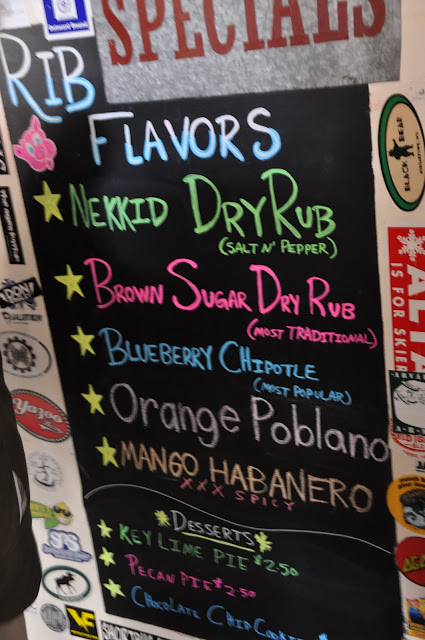 SPECIALS
RIB
FLAVORS
NEKKID DRY RUB
(SALT N' PEPPER)
BROWN SUGAR DRY RUB
(MOST TRADITIONAL)
BLUEBERRY CHIPOTLE
(MOST POPULAR)
Orange Poblano
MANGO HABANERO
XXX SPICY
DESSERTS
KEY LIME PIE $2.50
PECAN PIE $2.50
CHOCOLATE CHIP
BLACK BEAR
ALTA
IS FOR SKIER
Yazoo
SPS
VF